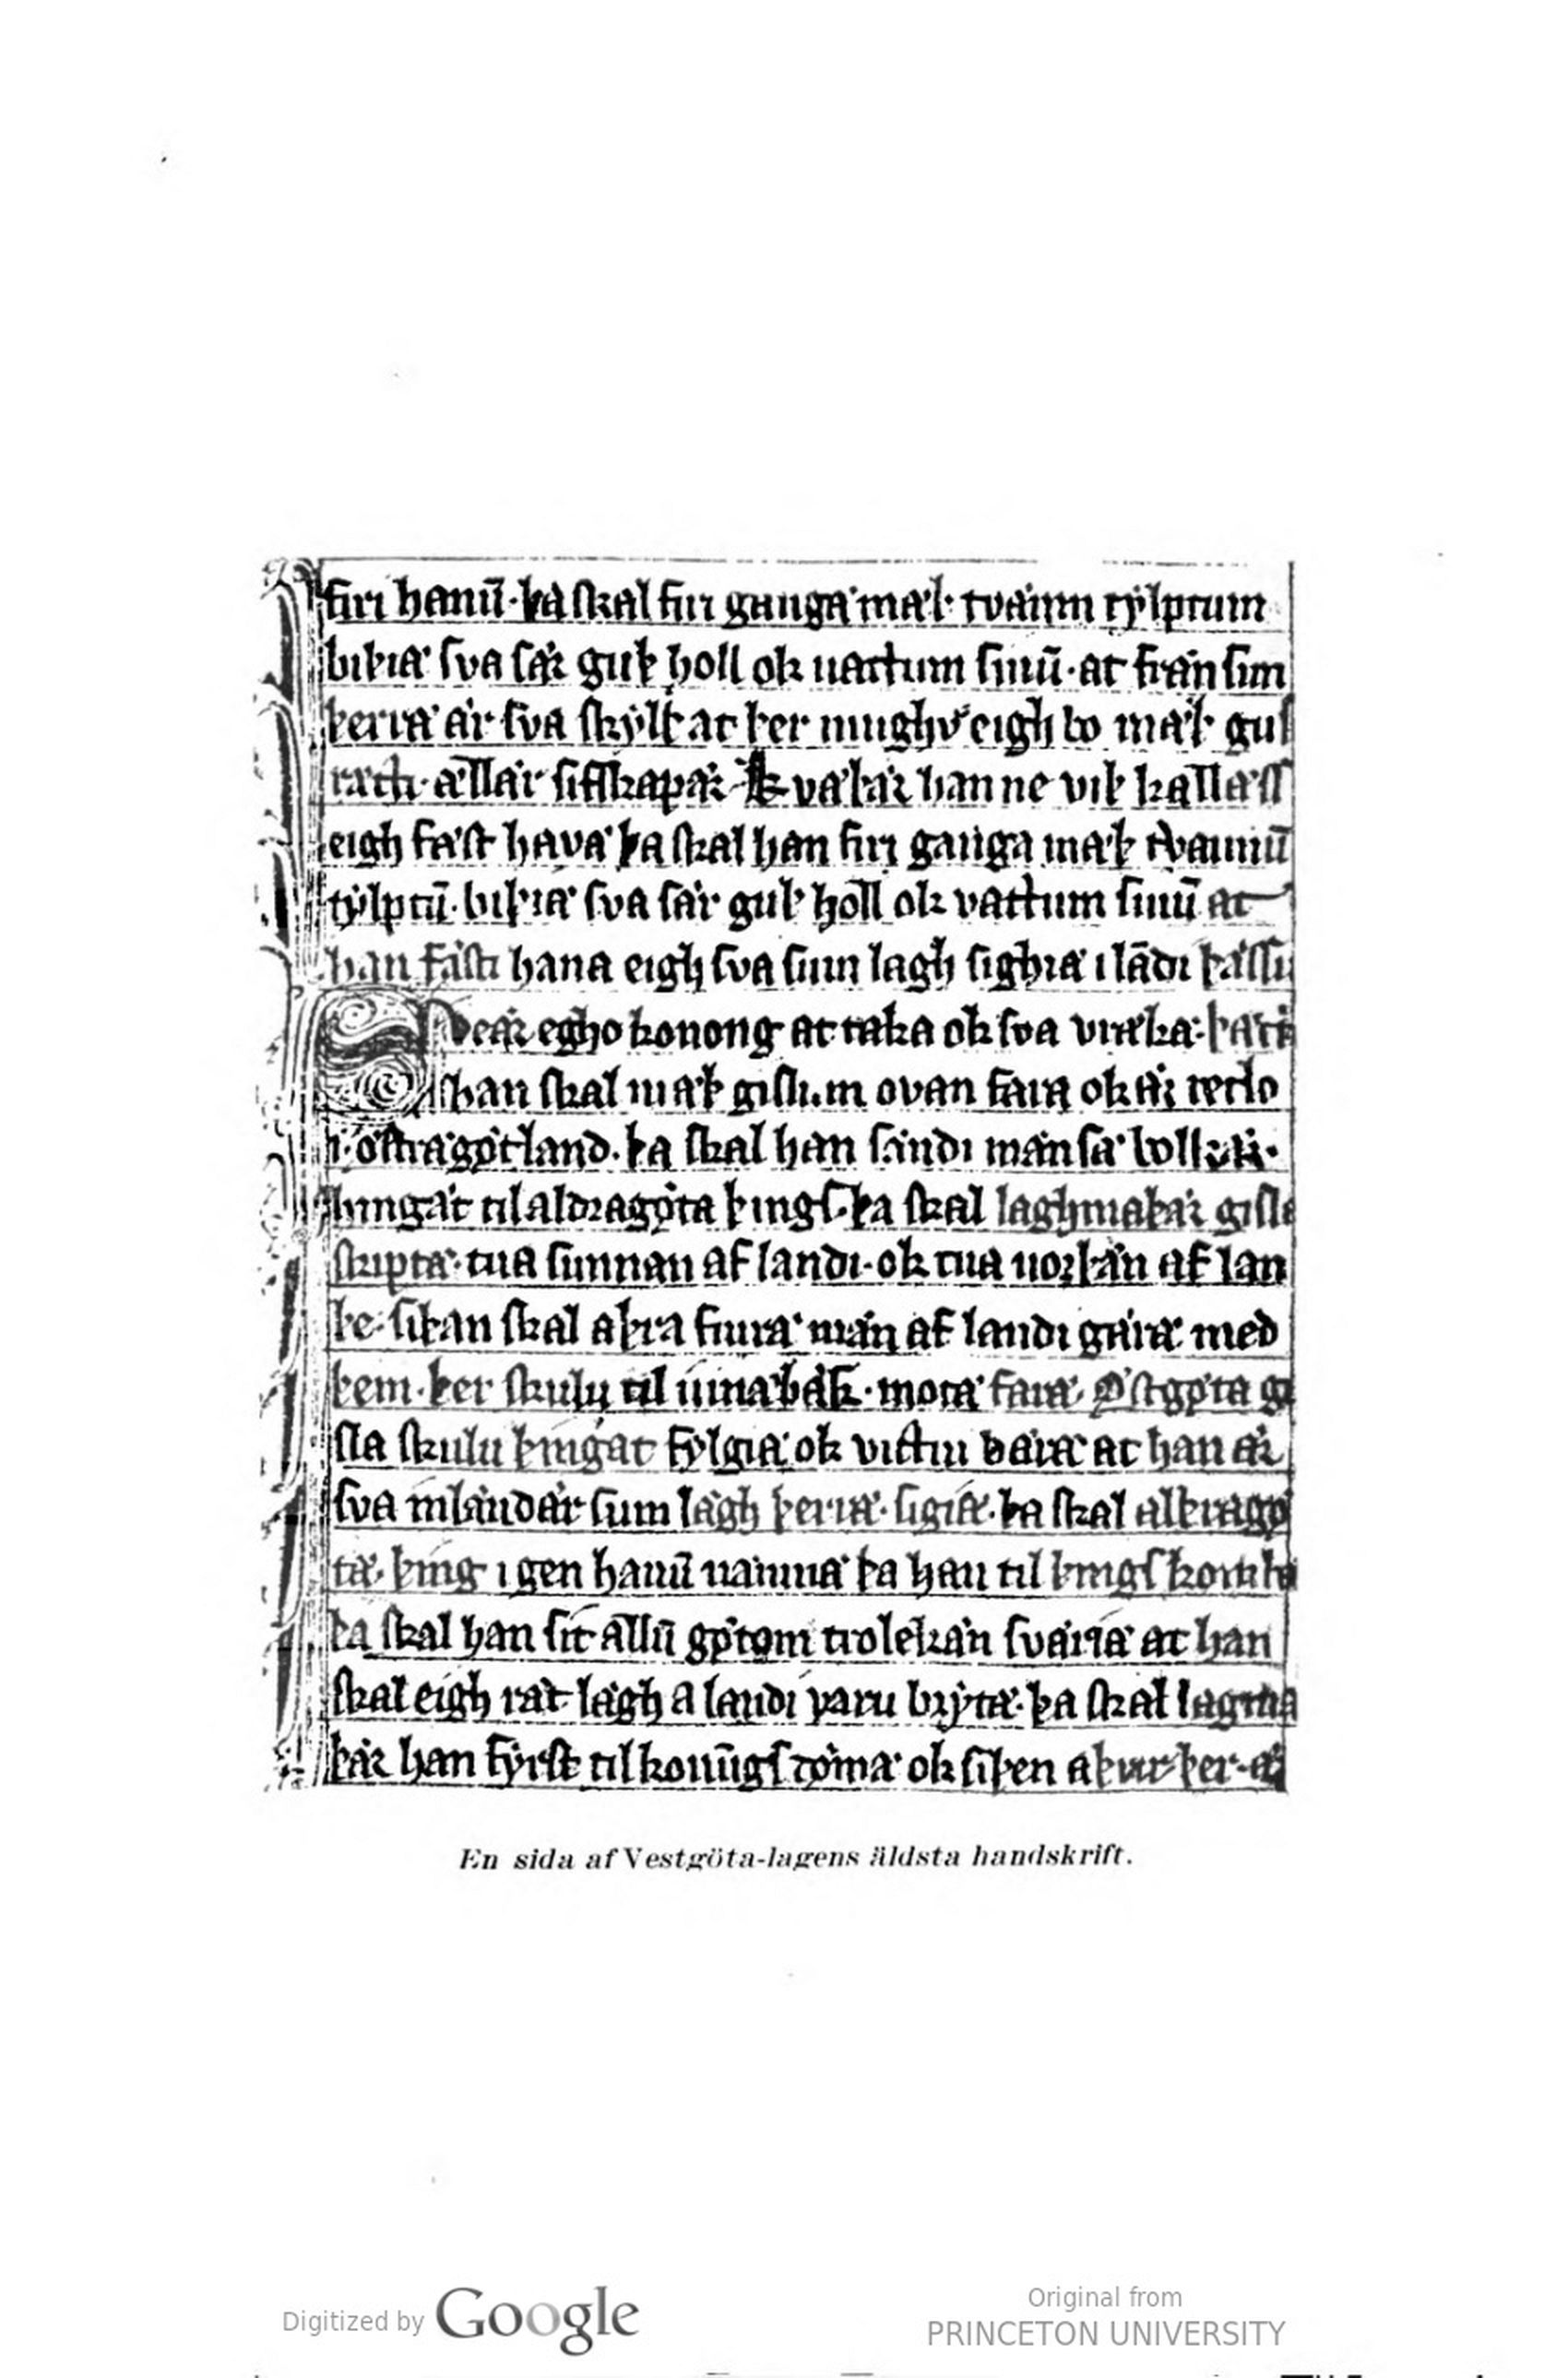 firi hanū· þa skal firi gangæ mæþ· tvænnı tylptum
biþiæ sva sær guþ holl ok uattum sinū· at frænsım
þerræ ær sva skylt at þer mughv eigh bo mæþ guſ
ræti· allær sifskapær· kvæþær han ne viþ kallæſſ
eigh fæst havæ þa skal han firi ganga mæþ tvænnū
tylptū· biþiæ sva sær guþ holl ok vattum sinū at
han fæsti hana eigh sva sum lagh sighiæ i lādi þæssu
Svear egho konong at taka ok sva vrækæ· þættæ
han skal mæþ gislum ovan fara ok ær teclo
i· ostrægøtland· þa skal han sændi mæn sæ
hingæt til aldragøta þings· þa skal laghmaþær gislæ
skiptæ· tua sunnan af landi· ok tua norþæn af lan
þe· siþan skal aþra fiuræ mæn af landi gæræ med
þem· þer skulu til iunæbæk· motæ faræ· Østgøta gi
sla skulu þingat fylgiæ ok vittni bæræ at han ær
sva inlændær sum lagh þerræ· sigiæ· þa skal alþragø
tæ· þing i gen hanū næmnæ þa han til þings
þa skal han sic allū gøtom trolekæn sværiæ at han
skal eigh ræt lagh a landi varu brytæ· þa skal laghma
þær han fyrst til konūgs dømæ ok siþen aþrir þer· ær
En sida af Vestgöta-lagens äldsta handskrift.
Digitized by Google
Original from
PRINCETON UNIVERSITY